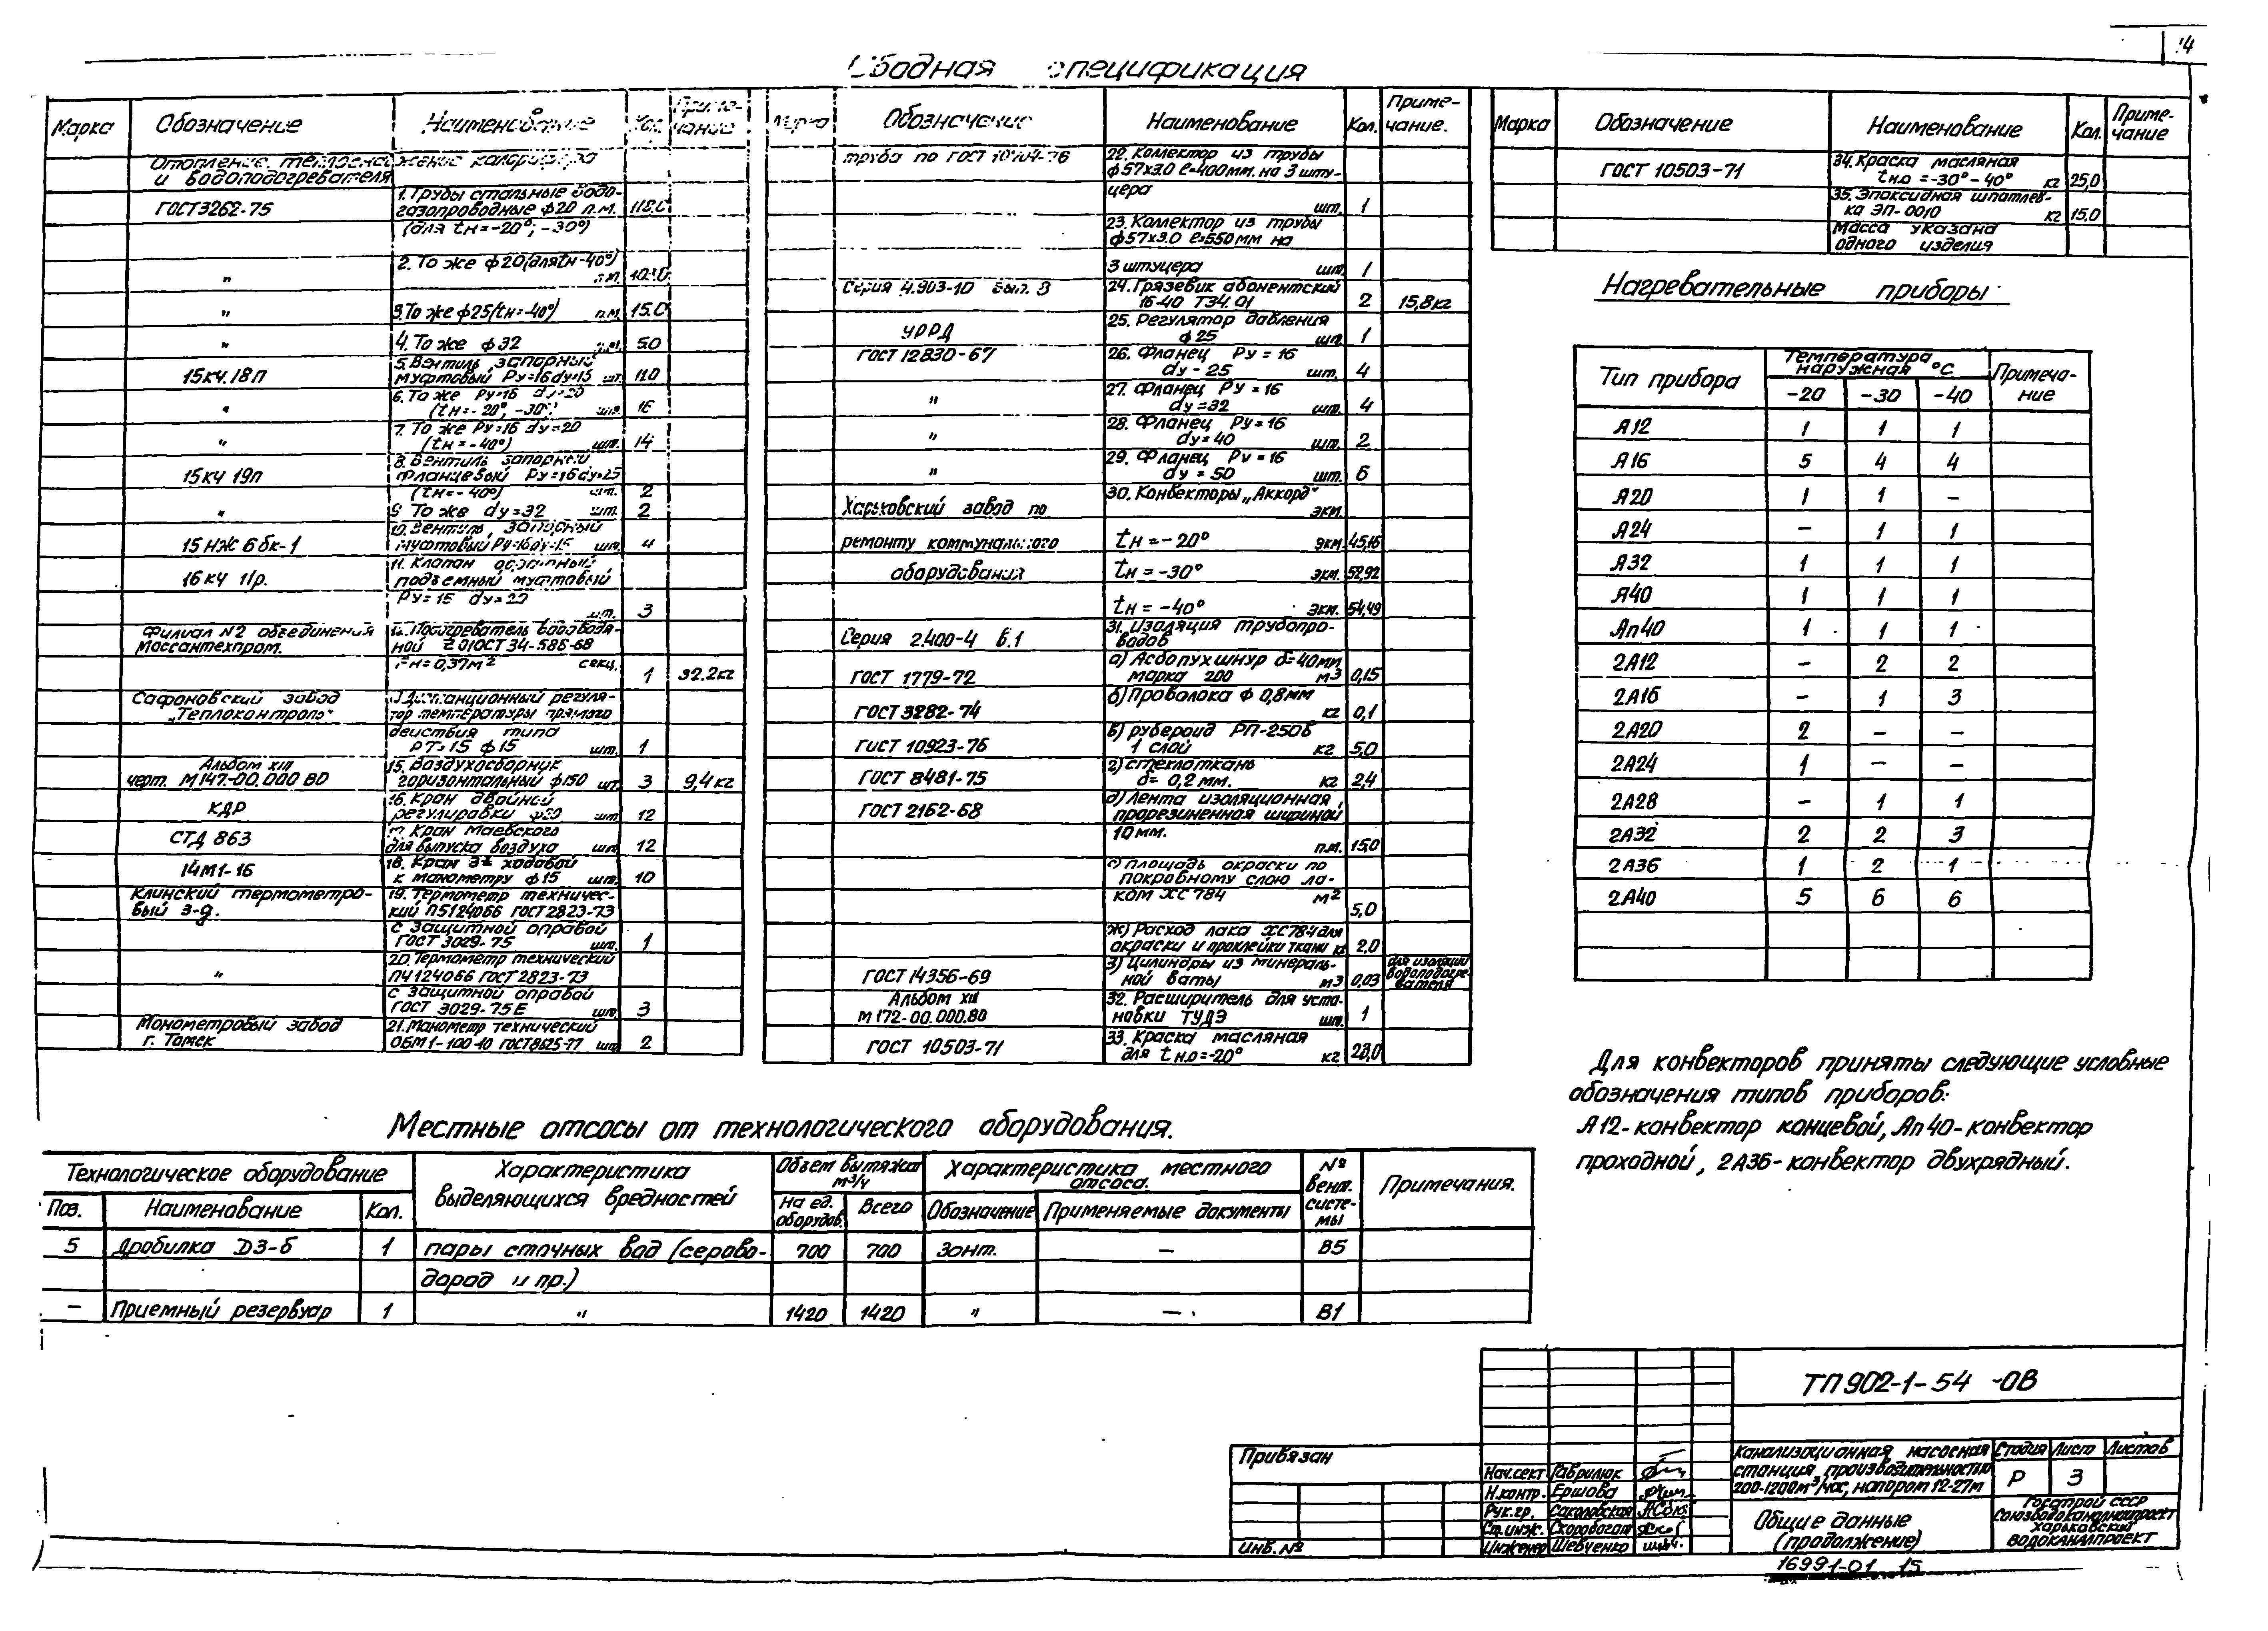 14
Сводная спецификация
Марка Обозначение Наименование Кол. Приме-чание
Отопление, теплоснабжение калорифера
и водоподогревателя
ГОСТ 3262-75 1. Трубы стальные водо-
газопроводные ф20 п.м. 118.0
(для tн=-20°; -30°)
" 2. То же ф20 (для tн-40°)
п.м.
" 3. То же ф25 (tн=-40°) п.м. 15.0
" 4. То же ф32 п.м. 5.0
15кч.18п 5. Вентиль запорный
муфтовый Ру=16 dу=15 шт. 11.0
" 6. То же Ру=16 dу=20
(tн=-20°, -30°) шт. 16
" 7. То же Ру=16 dу=20
(tн=-40°) шт. 14
15кч 19п 8. Вентиль запорный
фланцевый Ру=16 dу=25
(tн=-40°) шт. 2
" 9. То же dу=32 шт. 2
15 нж 6 бк-1 10. Вентиль запорный
муфтовый Ру=16 dу=15 шт. 4
16кч 11р. 11. Клапан обратный
подъемный муфтовый
Ру=16 dу=20
шт. 3
Филиал N2 объединения 12. Подогреватель водоводя-
Моссантехпром. ной 2 01 ОСТ 34-586-68
Fн=0,37м² секц. 1 32.2кг
Сафоновский завод Дистанционный регуля-
„Теплоконтроль" тор температуры прямого
действия типа
РТ-15 ф15 шт. 1
Альбом XIII 15. Воздухосборник
черт. М147-00.000 ВО горизонтальный ф150 шт. 3 9,4кг
КДР 16. Кран двойной
регулировки ф20 шт 12
СТД 863 17. Кран Маевского
для выпуска воздуха шт. 12
14М1-16 18. Кран 3х ходовой
к манометру ф15 шт. 10
Клинский термометро- 19. Термометр техничес-
вый з-д. кий П5124066 ГОСТ 2823-73
с защитной оправой
ГОСТ 3029-75 шт. 1
" 20. Термометр технический
П4124066 ГОСТ 2823-73
с защитной оправой
ГОСТ 3029-75Е шт. 3
Монометровый завод 21. Манометр технический
г. Томск ОБМ1-100-10 ГОСТ 8625-77 шт. 2
Марка Обозначение Наименование Кол. Приме-чание.
труба по ГОСТ 10704-76 22. Коллектор из трубы
ф57х3.0 ℓ=400мм. на 3 шту-
цера
шт. 1
23. Коллектор из трубы
ф57х3.0 ℓ=550мм на
3 штуцера шт. 1
Серия 4.903-10 вып. 8 24. Грязевик абонентский
16-40 Т34.01 2 15,8кг
УРРД 25. Регулятор давления
ф25 шт. 1
ГОСТ 12830-67 26. Фланец Ру=16
dу-25 шт. 4
" 27. Фланец Ру=16
dу=32 шт. 4
" 28. Фланец Ру=16
dу=40 шт. 2
" 29. Фланец Ру=16
dу=50 шт. 6
30. Конвекторы „Аккорд"
Харьковский завод по экм.
ремонту коммунального tн=-20° экм. 45,16
оборудования tн=-30° экм. 52,92
tн=-40° экм. 54,49
Серия 2.400-4 в.1 31. Изоляция трубопро-
водов
а) Асбопухшнур δ=40мм
ГОСТ 1779-72 марка 200 м3 0,15
б) Проволока ф 0,8мм
ГОСТ 3282-74 кг 0,1
в) рубероид РП-250б
ГОСТ 10923-76 1 слой кг 5,0
г) стеклоткань
ГОСТ 8481-75 δ=0,2мм. кг 2,4
д) Лента изоляционная,
ГОСТ 2162-68 прорезиненная шириной
10мм.
п.м. 15,0
е) площадь окраски по
покровному слою ла-
ком ХС 784 м2
5,0
ж) Расход лака ХС784 для
окраски и проклейки ткани кг 2,0
з) Цилиндры из минераль- для изоляции
ГОСТ 14356-69 ной ваты м3 0,03 водоподогре-
вателя
Альбом XIII 32. Расширитель для уста-
М172-00.000.80 новки ТУДЭ шт. 1
33. Краска масляная
ГОСТ 10503-71 для tн.о=-20° кг 23,0
Марка Обозначение Наименование Кол. Приме-чание
ГОСТ 10503-71 34. Краска масляная
tн.о=-30°-40° кг 25,0
35. Эпоксидная шпатлев-
ка ЭП-0010 кг 15.0
Масса указана
одного изделия
Нагревательные приборы
Тип прибора Температура наружная °С Примеча-ние
-20 -30 -40
А12 1 1 1
А16 5 4 4
А20 1 1 –
А24 – 1 1
А32 1 1 1
А40 1 1 1
Ап40 1 1 1
2А12 – 2 2
2А16 – 1 3
2А20 2 – –
2А24 1 – –
2А28 – 1 1
2А32 2 2 3
2А36 1 2 1
2А40 5 6 6
Для конвекторов приняты следующие условные
обозначения типов приборов:
А12-конвектор концевой, Ап40-конвектор
проходной, 2А36-конвектор двухрядный.
Местные отсосы от технологического оборудования.
Технологическое оборудование Характеристика выделяющихся вредностей Объем вытяжки м³/ч Характеристика местного отсоса. № вент. систе-мы Примечания.
Поз. Наименование Кол. На ед. оборудов. Всего Обозначение Применяемые документы
5 Дробилка ДЗ-б 1 пары сточных вод (серово- 700 700 Зонт. – В5
дород и пр.)
– Приемный резервуар 1 " 1420 1420 " – В1
ТП 902-1-54 -ОВ
Привязан
Инв. №
Нач.сект Гаврилюк
Н.контр. Ершова
Рук.гр. Соколовская
Ст.инж. Скоробогат
Инженер Шевченко
Канализационная насосная
станция, производительностью
200-1200м³/час, напором 12-27м
Стадия Лист Листов
Р 3
Общие данные
(продолжение)
Госстрой СССР
Союзводоканалниипроект
Харьковский
Водоканалпроект
16991-01 15